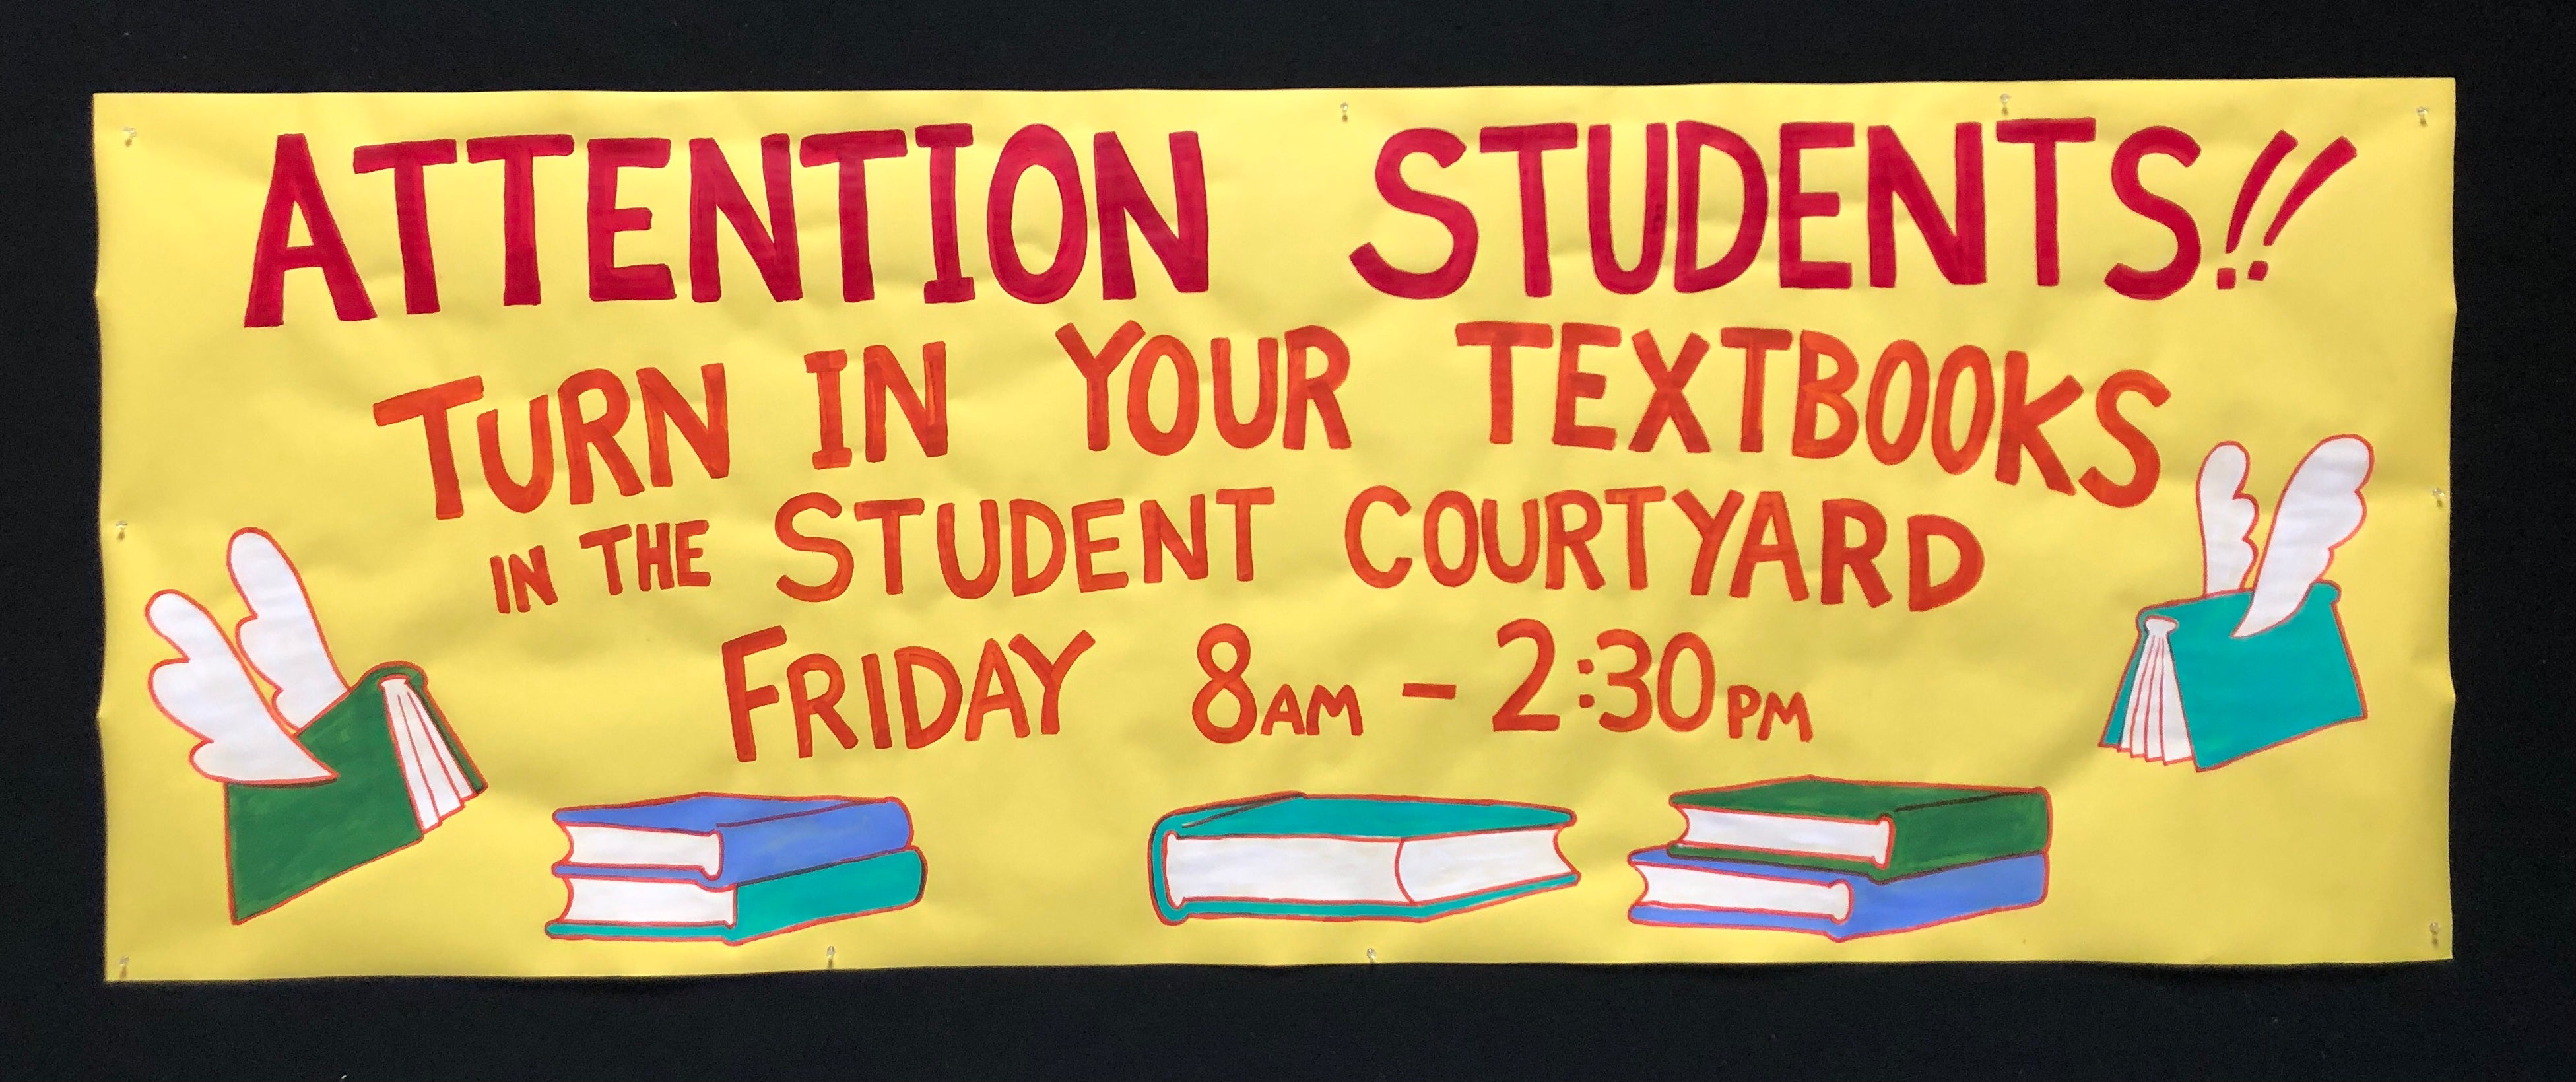 ATTENTION STUDENTS!!
TURN IN YOUR TEXTBOOKS
IN THE STUDENT COURTYARD
FRIDAY 8AM - 2:30PM